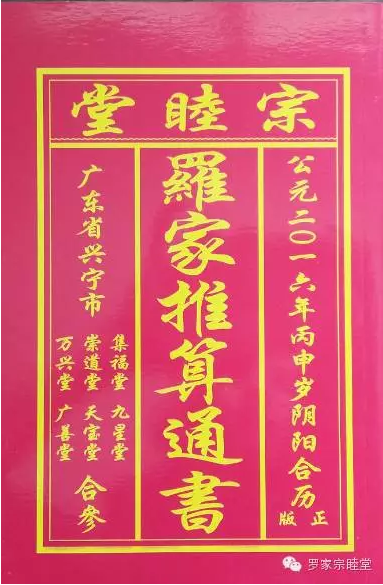 宗睦堂
公元二〇一六年丙申岁阴阳合历
正版
羅家推算通書
广东省兴宁市
集福堂 九星堂
崇道堂 天宝堂
万兴堂 广善堂
合參
罗家宗睦堂